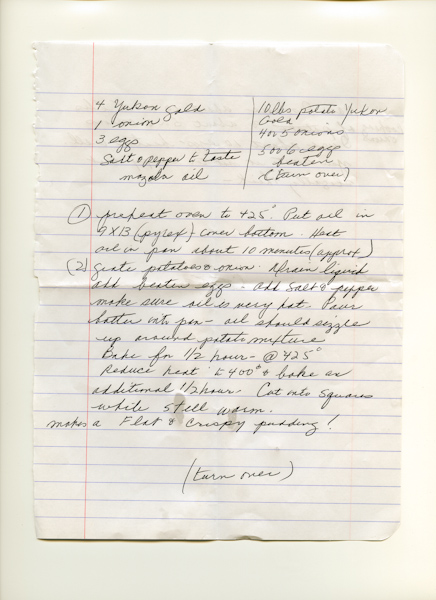 4 Yukon Gold
1 onion
3 eggs
Salt & pepper to taste
mazola oil
10 lbs potato Yukon
Gold
4 or 5 onions
5 or 6 eggs
beaten
(turn over)
① preheat oven to 425° Put oil in
9X13 (pyrex) cover bottom. Heat
oil in pan about 10 minutes (approx)
② grate potatoes & onion. Drain liquid
add beaten eggs - add salt & pepper
make sure oil is very hot. Pour
batter into pan - oil should sizzle
up around potato mixture
Bake for 1/2 hour - @ 425°
Reduce heat to 400° & bake an
additional 1/2 hour. Cut into squares
while still warm.
makes a Flat & Crispy pudding!
(turn over)